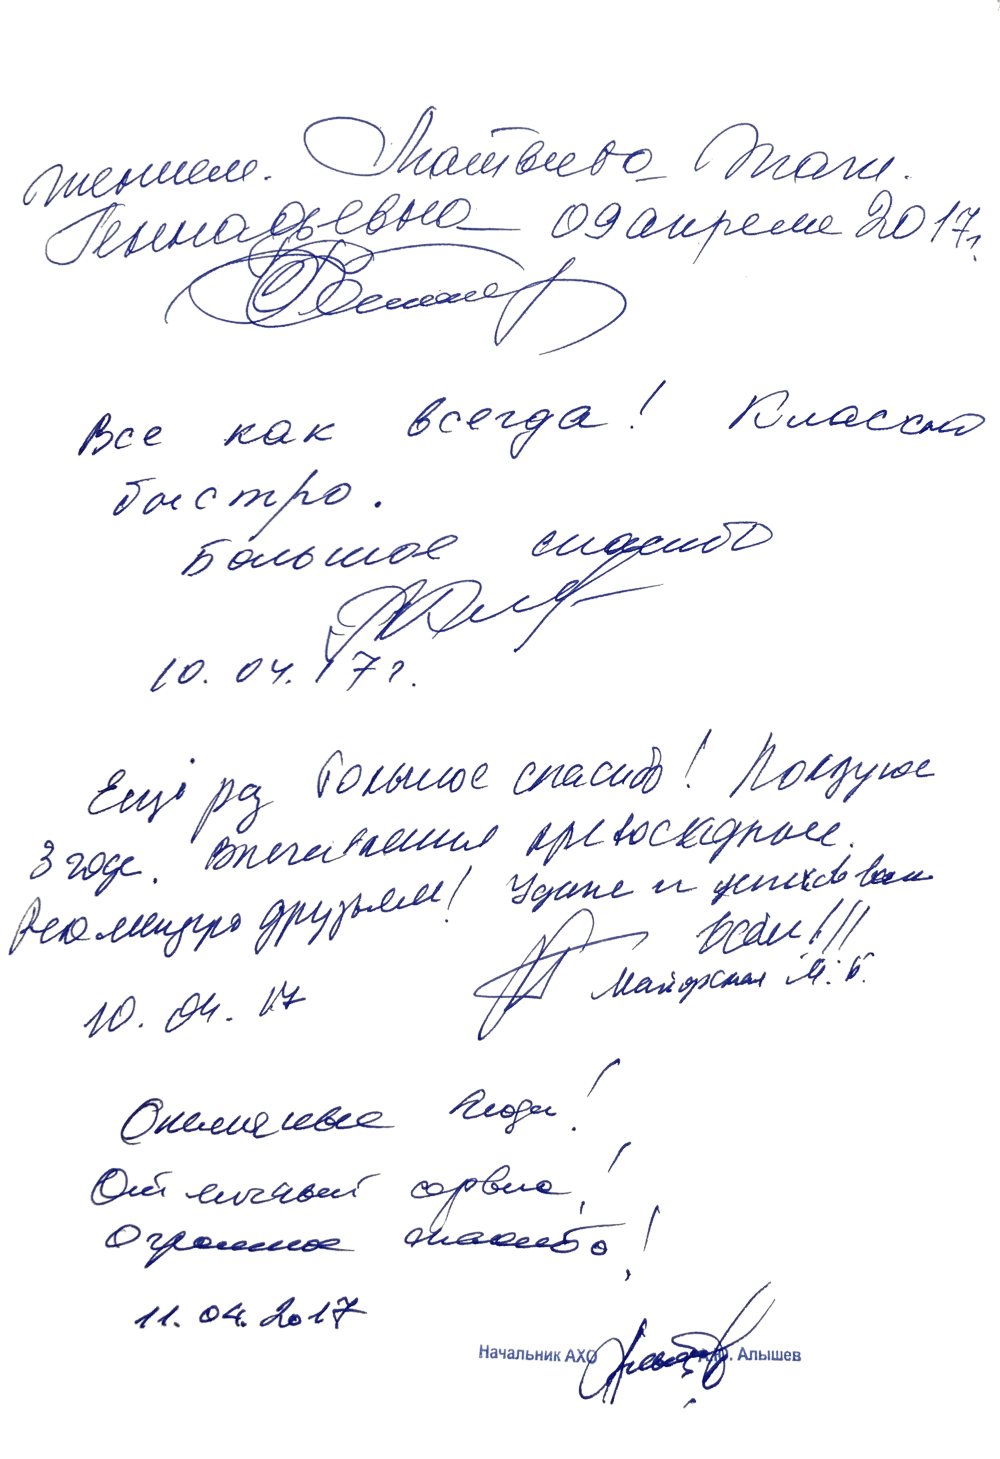 Матвиенко
Геннадьевна 09 апреля 2017г.
Все как всегда! Классно
быстро.
Большое спасибо
10.04.17г.
Ещё раз большое спасибо! Пользуюсь
3 года. Впечатления превосходные.
Рекомендую друзьям! Удачи и успехов вам
всем!!!
Майорская М.Б.
10.04.17
Отличные люди!
Отличный сервис!
Огромное спасибо!
11.04.2017
Начальник АХО А.Ю. Алышев